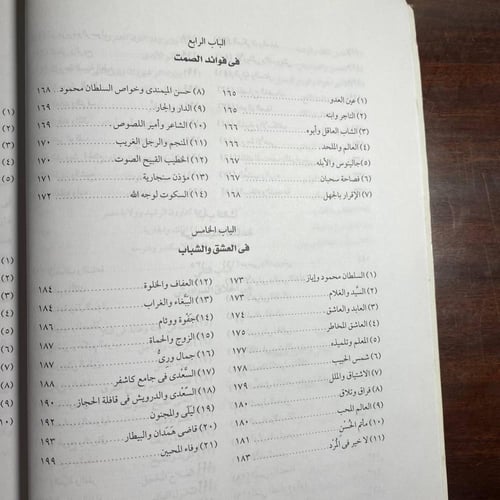 الباب الرابع
فى فوائد الصمت
(١) عين العدو ١٦٥
(٢) التاجر وابنه ١٦٥
(٣) الشاب العاقل وأبوه ١٦٦
(٤) العالم والملحد ١٦٦
(٥) جالينوس والأبله ١٦٧
(٦) فصاحة سحبان ١٦٧
(٧) الإقرار بالجهل ١٦٨
(٨) حسن الميمندى وخواص السلطان محمود ١٦٨
(٩) الدار والجار ١٦٩
(١٠) الشاعر وأمير اللصوص ١٦٩
(١١) المنجم والرجل الغريب ١٧٠
(١٢) الخطيب القبيح الصوت ١٧٠
(١٣) مؤذن سنجارية ١٧١
(١٤) السكوت لوجه الله ١٧٢
الباب الخامس
فى العشق والشباب
(١) السلطان محمود وإياز ١٧٣
(٢) السيِّد والغلام ١٧٣
(٣) العابد والعاشق ١٧٤
(٤) العاشق المخاطر
(٥) المعلم وتلميذه ١٧٧
(٦) شمس الحبيب ١٧٨
(٧) الاشتياق والملل ١٧٩
(٨) فراق وتلاق ١٨٠
(٩) العالم المحب ١٨٠
(١٠) مأتم الحُسْن ١٨١
(١١) لا خير فى المُرْد ١٨٣
(١٢) العفاف والخلوة ١٨٤
(١٣) الببَّغاء والغراب ١٨٤
(١٤) جَفْوة ووئام ١٨٦
(١٥) الزوج والحماة ١٨٧
(١٦) جمال وَرِىُّ ١٨٧
(١٧) السعْدى فى جامع كاشغر ١٨٨
(١٨) السعْدى والدرويش فى قافلة الحجاز ١٩٠
(١٩) ليْلَى والمجنون ١٩٠
(٢٠) قاضى هَمَدان والبيطار ١٩٣
(٢١) وفاء المحبين ١٩٩